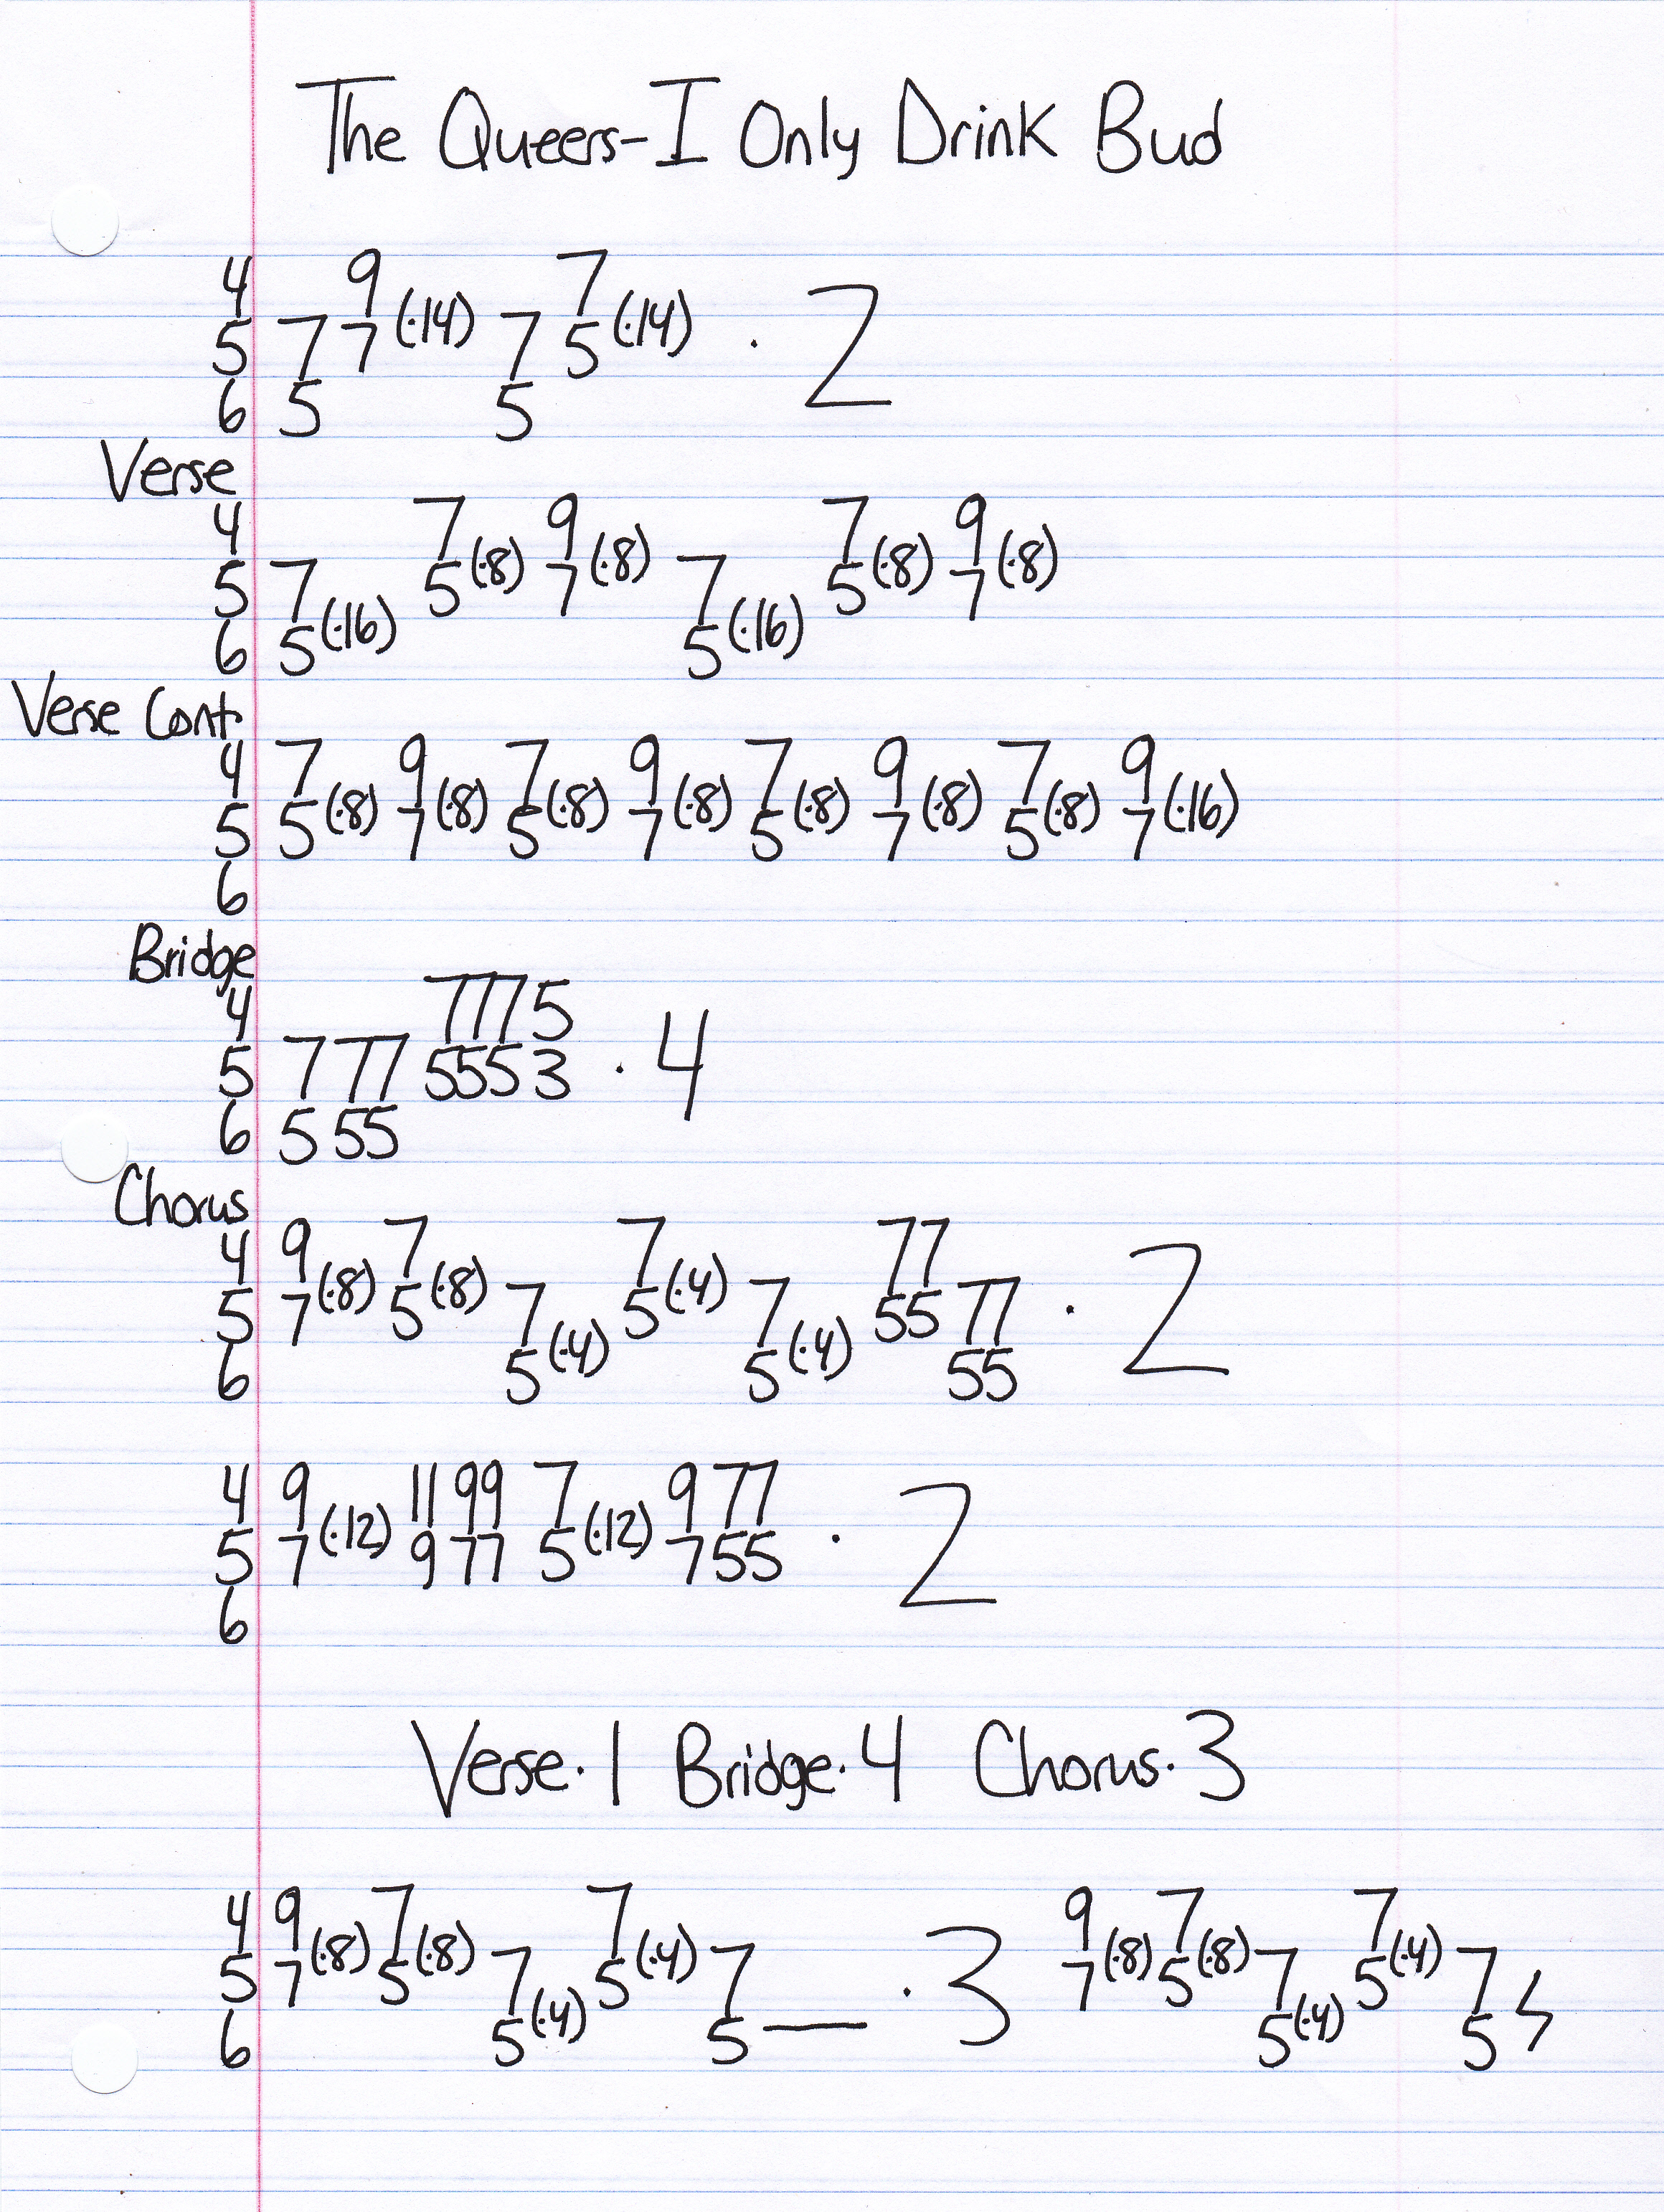 The Queers-I Only Drink Bud
4 9 7
5 7 7 (·14) 7 5 (·14) · 2
6 5 5
Verse
4 7 9 7 9
5 7 5(·8) 7(·8) 7 5(·8) 7(·8)
6 5(·16) 5(·16)
Verse Cont.
4 7 9 7 9 7 9 7 9
5 5(·8) 7(·8) 5(·8) 7(·8) 5(·8) 7(·8) 5(·8) 7(·16)
6
Bridge
4 7775
5 7 77 5553 · 4
6 5 55
Chorus
4 9 7 7 77
5 7(·8) 5(·8) 7 5(·4) 7 55 77 · 2
6 5(·4) 5(·4) 55
4 9 11 99 7 9 77
5 7(·12) 9 77 5(·12) 7 55 · 2
6
Verse·1 Bridge·4 Chorus·3
4 9 7 7 9 7 7
5 7(·8) 5(·8) 7 5(·4) 7 · 3 7(·8) 5(·8) 7 5(·4) 7
6 5(·4) 5_ 5(·4) 5